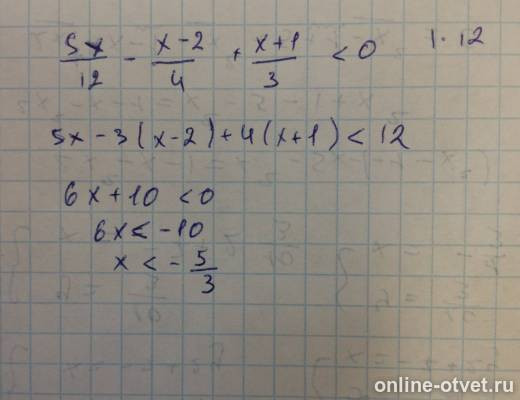 5x/12 - x-2/4 + x+1/3 < 0 | · 12
5x - 3(x-2) + 4(x+1) < 12
6x + 10 < 0
6x < -10
x < - 5/3
online-otvet.ru